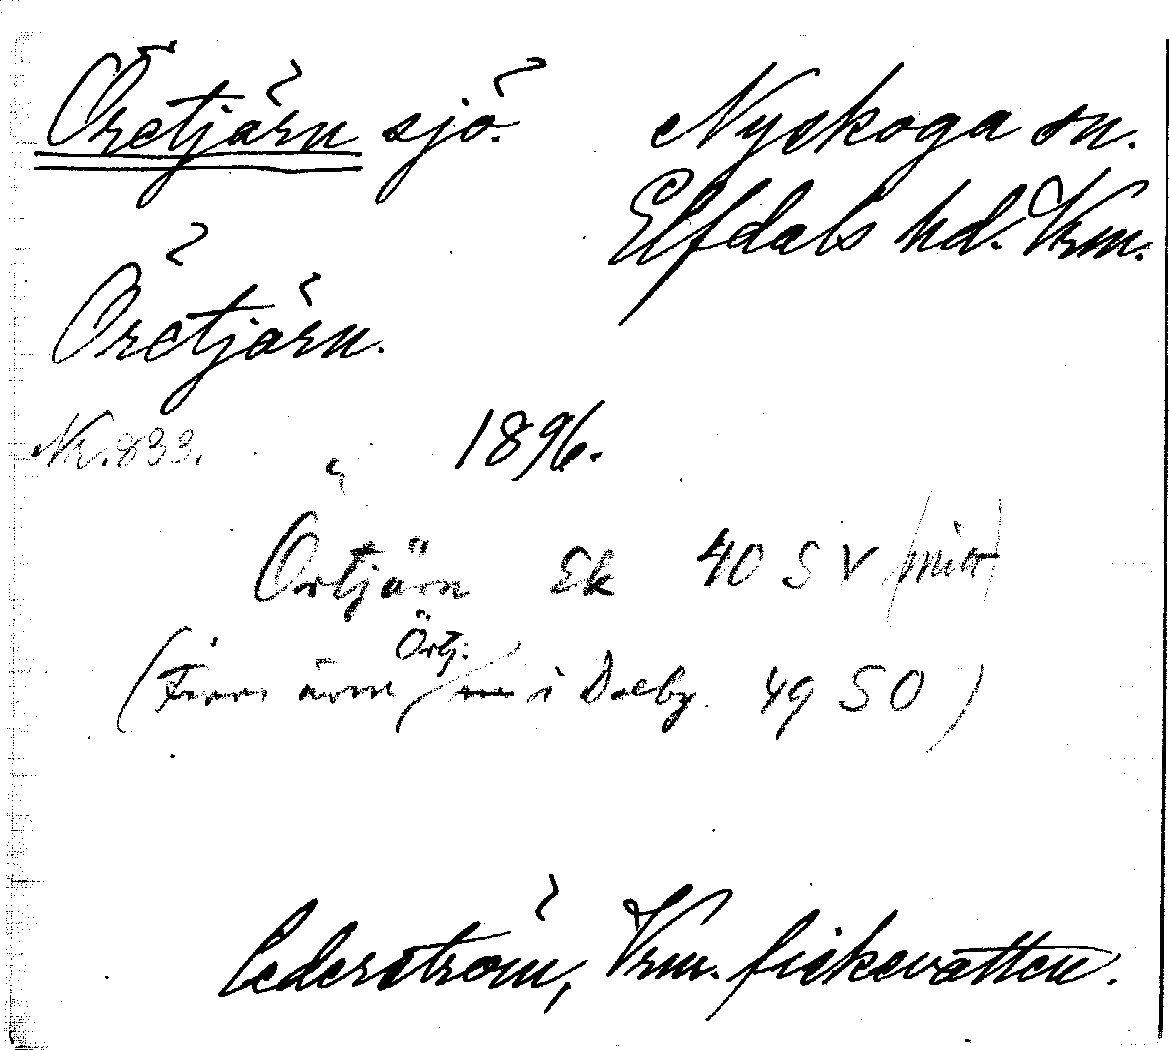 Öretjärn sjö. Nyskoga sn.
Elfdals hd. Vrm.
Öretjärn.
Nr. 833. 1896.
Örtjärn Ek 40 SV (mitt)
(Finns även Örtj. i Dalby 49 SO)
Cederström, Vrm. fiskevatten.